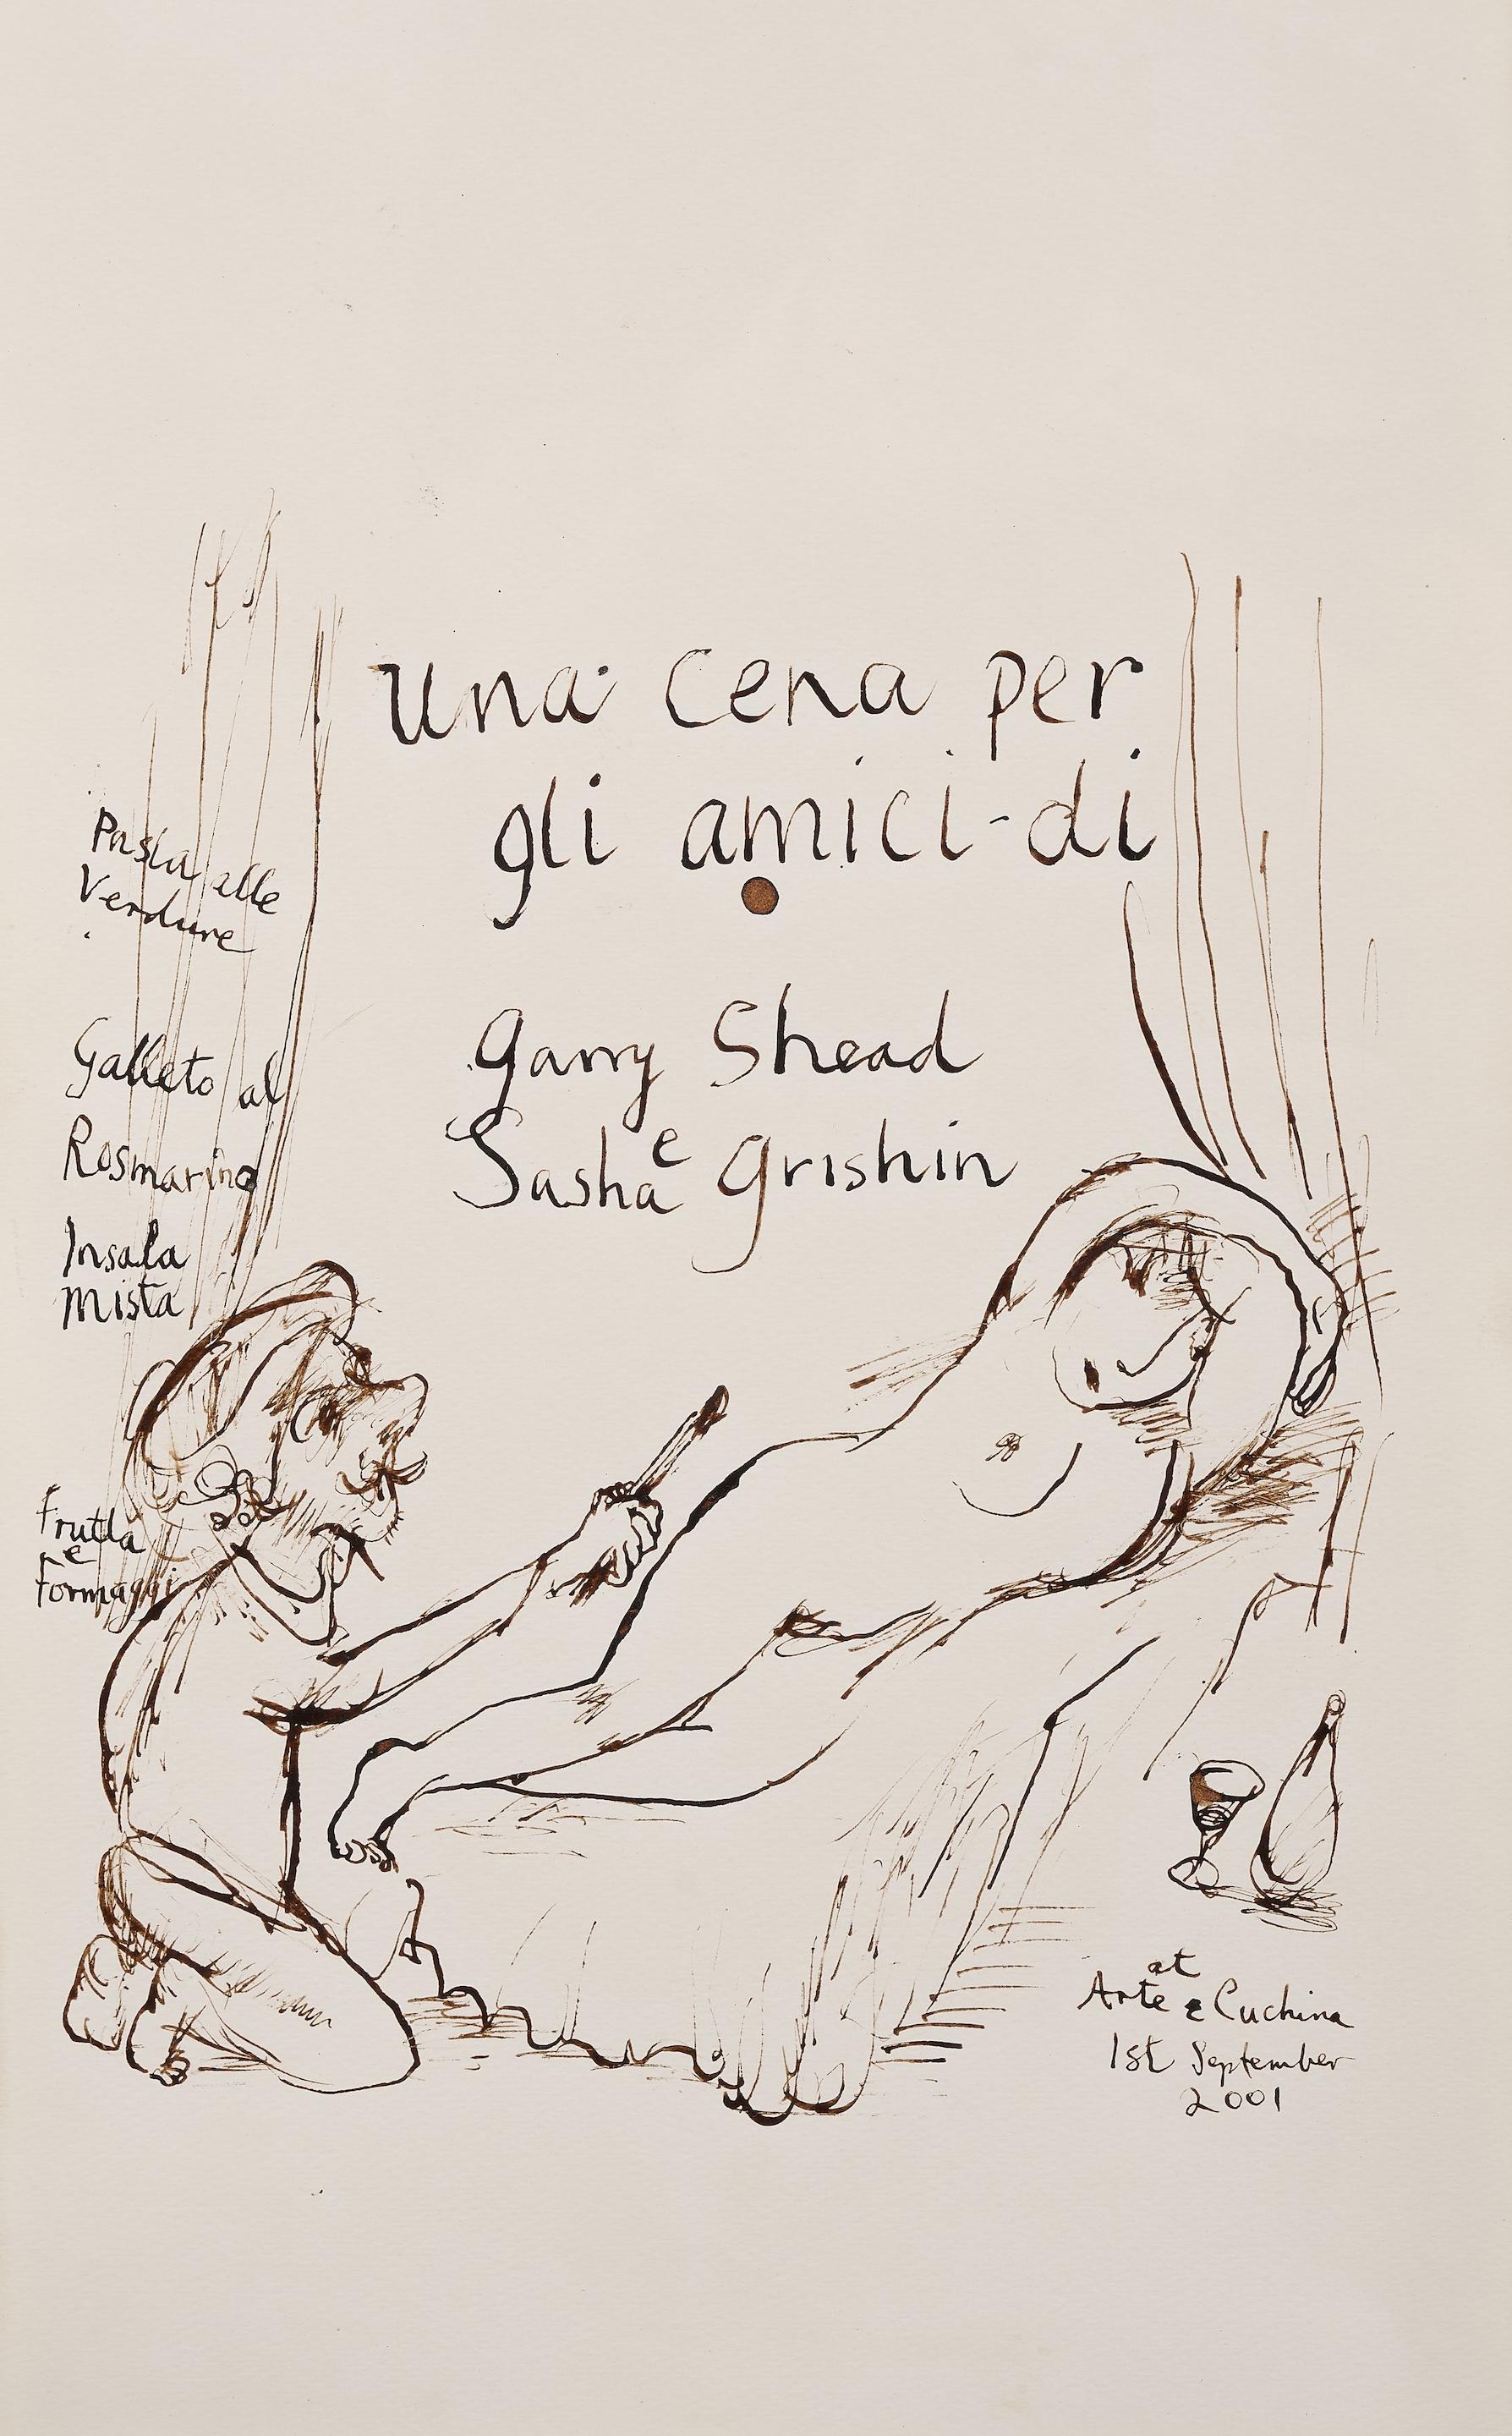 una cena per
gli amici-di
Garry Shead
e
Sasha Grishin
Pasta alle
Verdure
Galleto al
Rosmarino
Insala
mista
Frutta
e
Formaggi
at
Arte e Cuchina
1st September
2001